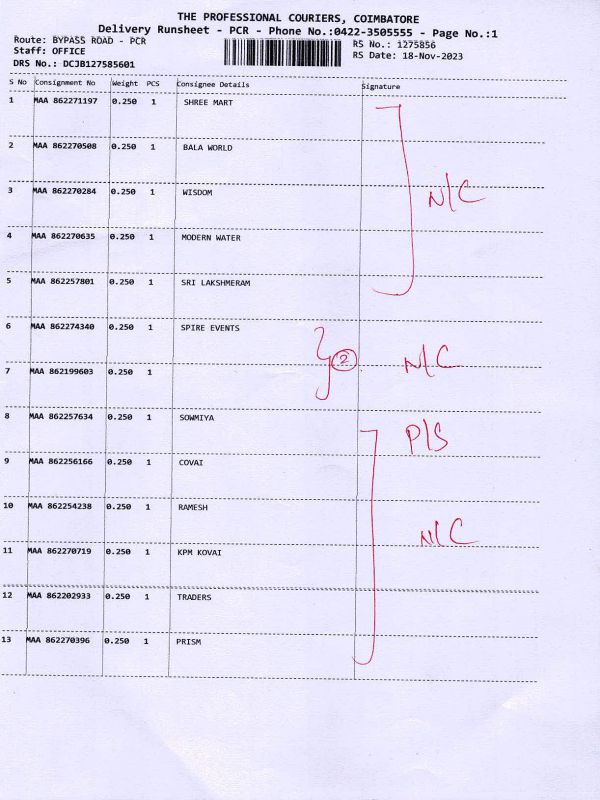 THE PROFESSIONAL COURIERS, COIMBATORE
Delivery Runsheet - PCR - Phone No.:0422-3505555 - Page No.:1
Route: BYPASS ROAD - PCR
RS No.: 1275856
Staff: OFFICE
RS Date: 18-Nov-2023
DRS No.: DCJB127585601
S No Consignment No Weight PCS Consignee Details Signature
1 MAA 862271197 0.250 1 SHREE MART
2 MAA 862270508 0.250 1 BALA WORLD
3 MAA 862270284 0.250 1 WISDOM N/C
4 MAA 862270635 0.250 1 MODERN WATER
5 MAA 862257801 0.250 1 SRI LAKSHMERAM
6 MAA 862274340 0.250 1 SPIRE EVENTS
2 N/C
7 MAA 862199603 0.250 1
8 MAA 862257634 0.250 1 SOWMIYA P/S
9 MAA 862256166 0.250 1 COVAI
10 MAA 862254238 0.250 1 RAMESH
N/C
11 MAA 862270719 0.250 1 KPM KOVAI
12 MAA 862202933 0.250 1 TRADERS
13 MAA 862270396 0.250 1 PRISM